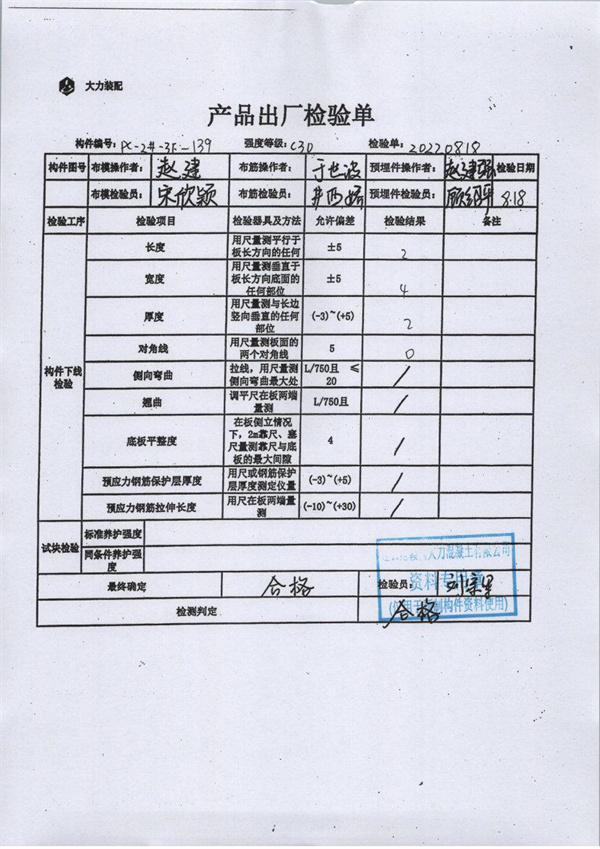 大力装配
产品出厂检验单
构件编号: PC-2#-3F-139 强度等级: C30 检验单: 20220818
构件图号 布模操作者: 赵建 布筋操作者: 于世波 预埋件操作者: 赵建强 检验日期
布模检验员: 宋欣颖 布筋检验员: 预埋件检验员: 8.18
检验工序 检验项目 检验器具及方法 允许偏差 检验结果 备注
构件下线检验
长度 用尺量测平行于板长方向的任何 ±5 2
宽度 用尺量测垂直于板长方向底面的任何部位 ±5 4
厚度 用尺量测与长边竖向垂直的任何部位 (-3)~(+5) 2
对角线 用尺量测板面的两个对角线 5 0
侧向弯曲 拉线,用尺量测侧向弯曲最大处 L/750且 ≤20 /
翘曲 调平尺在板两端量测 L/750且 /
底板平整度 在板侧立情况下,2m靠尺、塞尺量测靠尺与底板的最大间隙 4 /
预应力钢筋保护层厚度 用尺或钢筋保护层厚度测定仪量 (-3)~(+5) /
预应力钢筋拉伸长度 用尺在板两端量测 (-10)~(+30) /
试块检验 标准养护强度
同条件养护强度
最终确定 合格 检验员:
检测判定 合格
大力混凝土有限公司
资料专用章
构件资料使用)